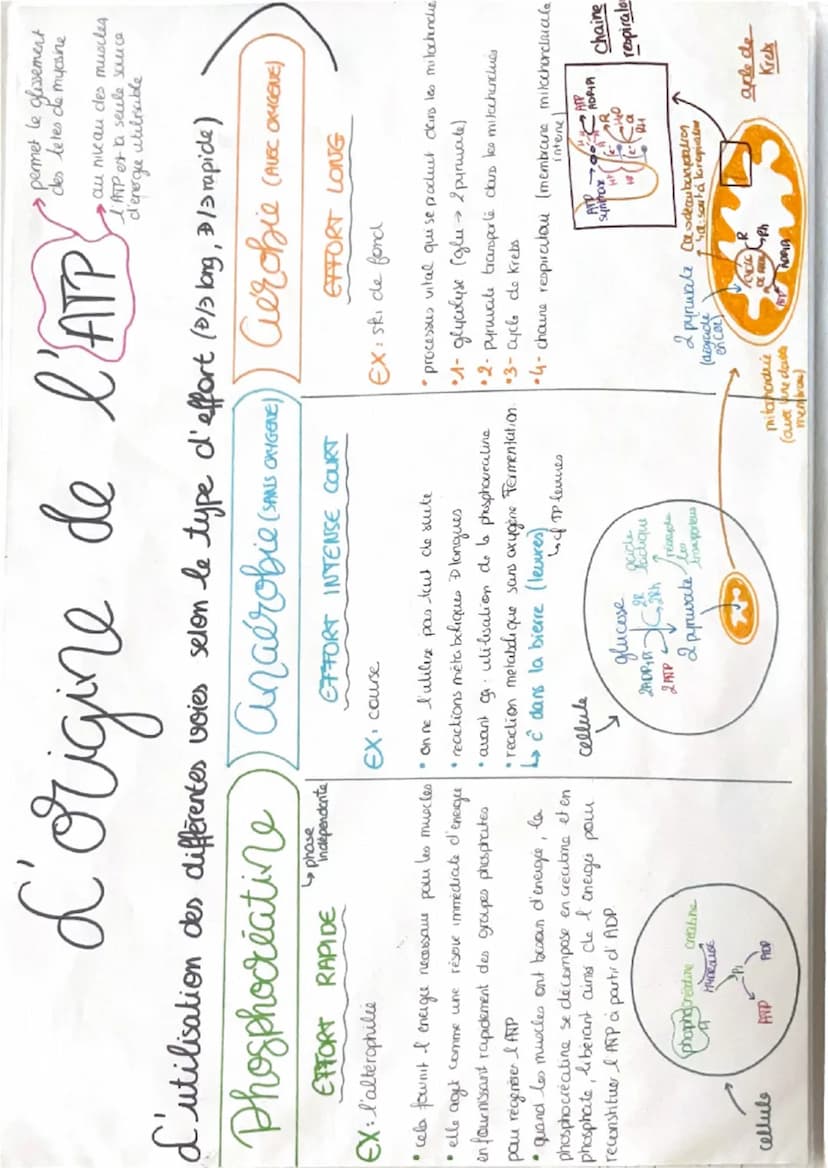 L'origine de l'ATP
→ permet le glissement
des têtes de myosine
→ au niveau des muscles
l'ATP est la seule source
d'énergie utilisable
L'utilisation des différentes voies selon le type d'effort (D/3 long, D/3 rapide)
Phosphocréatine
↳ phase
indépendante
EFFORT RAPIDE
EX: l'altérophilie
• cela fournit l'énergie nécessaire pour les muscles
• elle agit comme une réserve immédiate d'énergie
en fournissant rapidement des groupes phosphates
pour régénérer l'ATP
• quand les muscles ont besoin d'énergie, la
phosphocréatine se décompose en créatine et en
phosphate, libérant ainsi de l'énergie pour
reconstituer l'ATP à partir d'ADP.
phosphocréatine créatine
Pi
ATP ADP
cellule
anaérobie (SANS OXYGENE)
EFFORT INTENSE COURT
EX: course
• on ne l'utilise pas tout de suite
• reactions métaboliques D longues
• avant ça: utilisation de la phosphocréatine
• reaction metabolique sans oxygène Fermentation.
↳ c dans la bierre (levures)
↳ cf TP levures
cellule
glucose
2ADP+Pi 2R
2ATP 2RH
2 pyruvate
acide
lactique
récupère
les
transporteurs
aérobie (AVEC OXYGENE)
EFFORT LONG
EX: ski de fond
• processus vital qui se produit dans les mitochondrie
•1- glycolyse (glu → 2 pyruvate)
•2- Pyruvate transporté dans les mitochondries
•3- cycle de Krebs
•4- chaine respiration (membrane mitochondriale
interne)
ATP
synthase
ATP
ADP+Pi
chaine
respirato
2 pyruvate
(dégradé
en CO2)
CO2 = décarboxylation
↳ il sert à la respiration
CYCLE
DE KREBS
R
RH
ATP
ADP+Pi
cycle de
Krebs
mitochondrie
(avec une double
membrane)